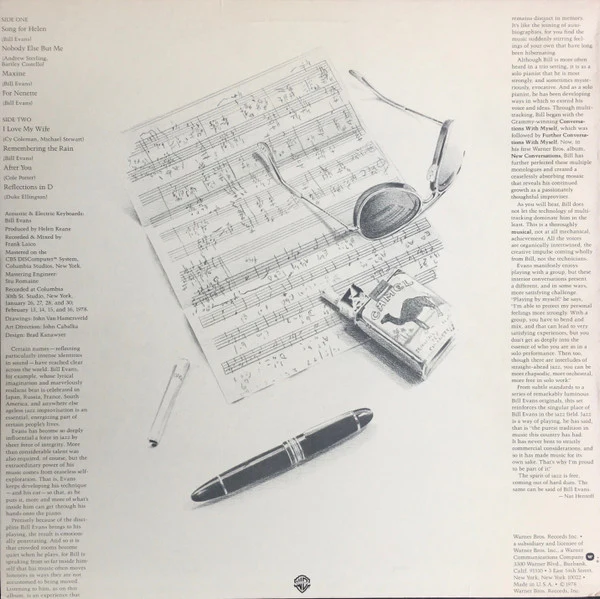 SIDE ONE
Song for Helen
(Bill Evans)
Nobody Else But Me
(Andrew Sterling,
Bartley Costello)
Maxine
(Bill Evans)
For Nenette
(Bill Evans)
SIDE TWO
I Love My Wife
(Cy Coleman, Michael Stewart)
Remembering the Rain
(Bill Evans)
After You
(Cole Porter)
Reflections in D
(Duke Ellington)
Acoustic & Electric Keyboards:
Bill Evans
Produced by Helen Keane
Recorded & Mixed by
Frank Laico
Mastered on the
CBS DISComputer™ System,
Columbia Studios, New York.
Mastering Engineer:
Stu Romaine
Recorded at Columbia
30th St. Studio, New York.
January 26, 27, 28, and 30;
February 13, 14, 15, and 16, 1978.
Drawings: John Van Hamersveld
Art Direction: John Cabalka
Design: Brad Kanawyer
Certain names—reflecting
particularly intense identities
in sound—have reached clear
across the world. Bill Evans,
for example, whose lyrical
imagination and marvelously
resilient beat is celebrated in
Japan, Russia, France, South
America, and anywhere else
ageless jazz improvisation is an
essential, energizing part of
certain people's lives.
Evans has become so deeply
influential a force in jazz by
sheer force of integrity. More
than considerable talent was
also required, of course, but the
extraordinary power of his
music comes from ceaseless self-
exploration. That is, Evans
keeps developing his technique
—and his ear—so that, as he
puts it, more and more of what's
inside him can get through his
hands onto the piano.
Precisely because of the disci-
pline Bill Evans brings to his
playing, the result is emotion-
ally penetrating. And so it is
that crowded rooms become
quiet when he plays, for Bill is
speaking from so far inside him-
self that his music often moves
listeners in ways they are not
accustomed to being moved.
Listening to him, as on this
album, is an experience that
remains distinct in memory.
It's like the joining of auto-
biographies, for you find the
music suddenly stirring feel-
ings of your own that have long
been hibernating.
Although Bill is more often
heard in a trio setting, it is as a
solo pianist that he is most
strongly, and sometimes myste-
riously, evocative. And as a solo
pianist, he has been developing
ways in which to extend his
tones and ideas. Through multi-
tracking, Bill began with the
Grammy-winning Conversa-
tions With Myself, which was
followed by Further Conversa-
tions With Myself. Now, in
his first Warner Bros. album,
New Conversations, Bill has
further perfected these multiple
monologues and created a
ceaselessly absorbing mosaic
that reveals his continued
growth as a passionately
thoughtful improviser.
As you will hear, Bill does
not let the technology of multi-
tracking dominate him in the
least. This is a thoroughly
musical, not at all mechanical,
achievement. All the voices
are organically intertwined, the
creative impulse coming wholly
from Bill, not the technicians.
Evans manifestly enjoys
playing with a group, but these
intense conversations present
a different, and in some ways,
more satisfying challenge.
"Playing by myself," he says,
"I'm able to project my personal
feelings more strongly. With a
group, you have to bend and
mix, and that can lead to very
satisfying experiences, but you
don't get as deeply into the
essence of who you are as in a
solo performance. Then too,
though there are interludes of
straight-ahead jazz, you can be
more rhapsodic, more orchestral,
more free in solo work."
From subtle standards to a
series of remarkably luminous
Bill Evans originals, this set
reinforces the singular place of
Bill Evans in the jazz field. Jazz
is a way of playing, he has said,
that is "the purest tradition in
music this country has had.
It has never bent to strictly
commercial considerations, and
so it has made music for its
own sake. That's why I'm proud
to be part of it."
The spirit of jazz is free,
coming out of hard doin. The
same can be said of Bill Evans.
—Nat Hentoff
CAMEL
Warner Bros. Records Inc. •
a subsidiary and licensee of
Warner Bros. Inc., a Warner
Communications Company
3300 Warner Blvd., Burbank,
Calif. 91510 • 3 East 54th Street,
New York, New York 10022 •
Made in U.S.A. • © 1978
Warner Bros. Records, Inc.